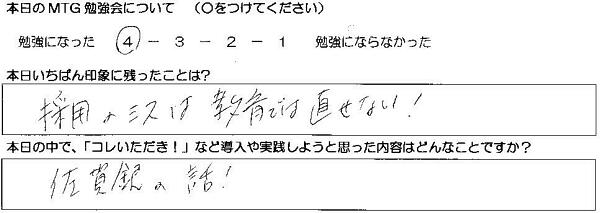 本日のMTG勉強会について （○をつけてください）
勉強になった 4 － 3 － 2 － 1 勉強にならなかった
本日いちばん印象に残ったことは？
採用のミスは教育では直せない！
本日の中で、「コレいただき！」など導入や実践しようと思った内容はどんなことですか？
佐賀銀の話！